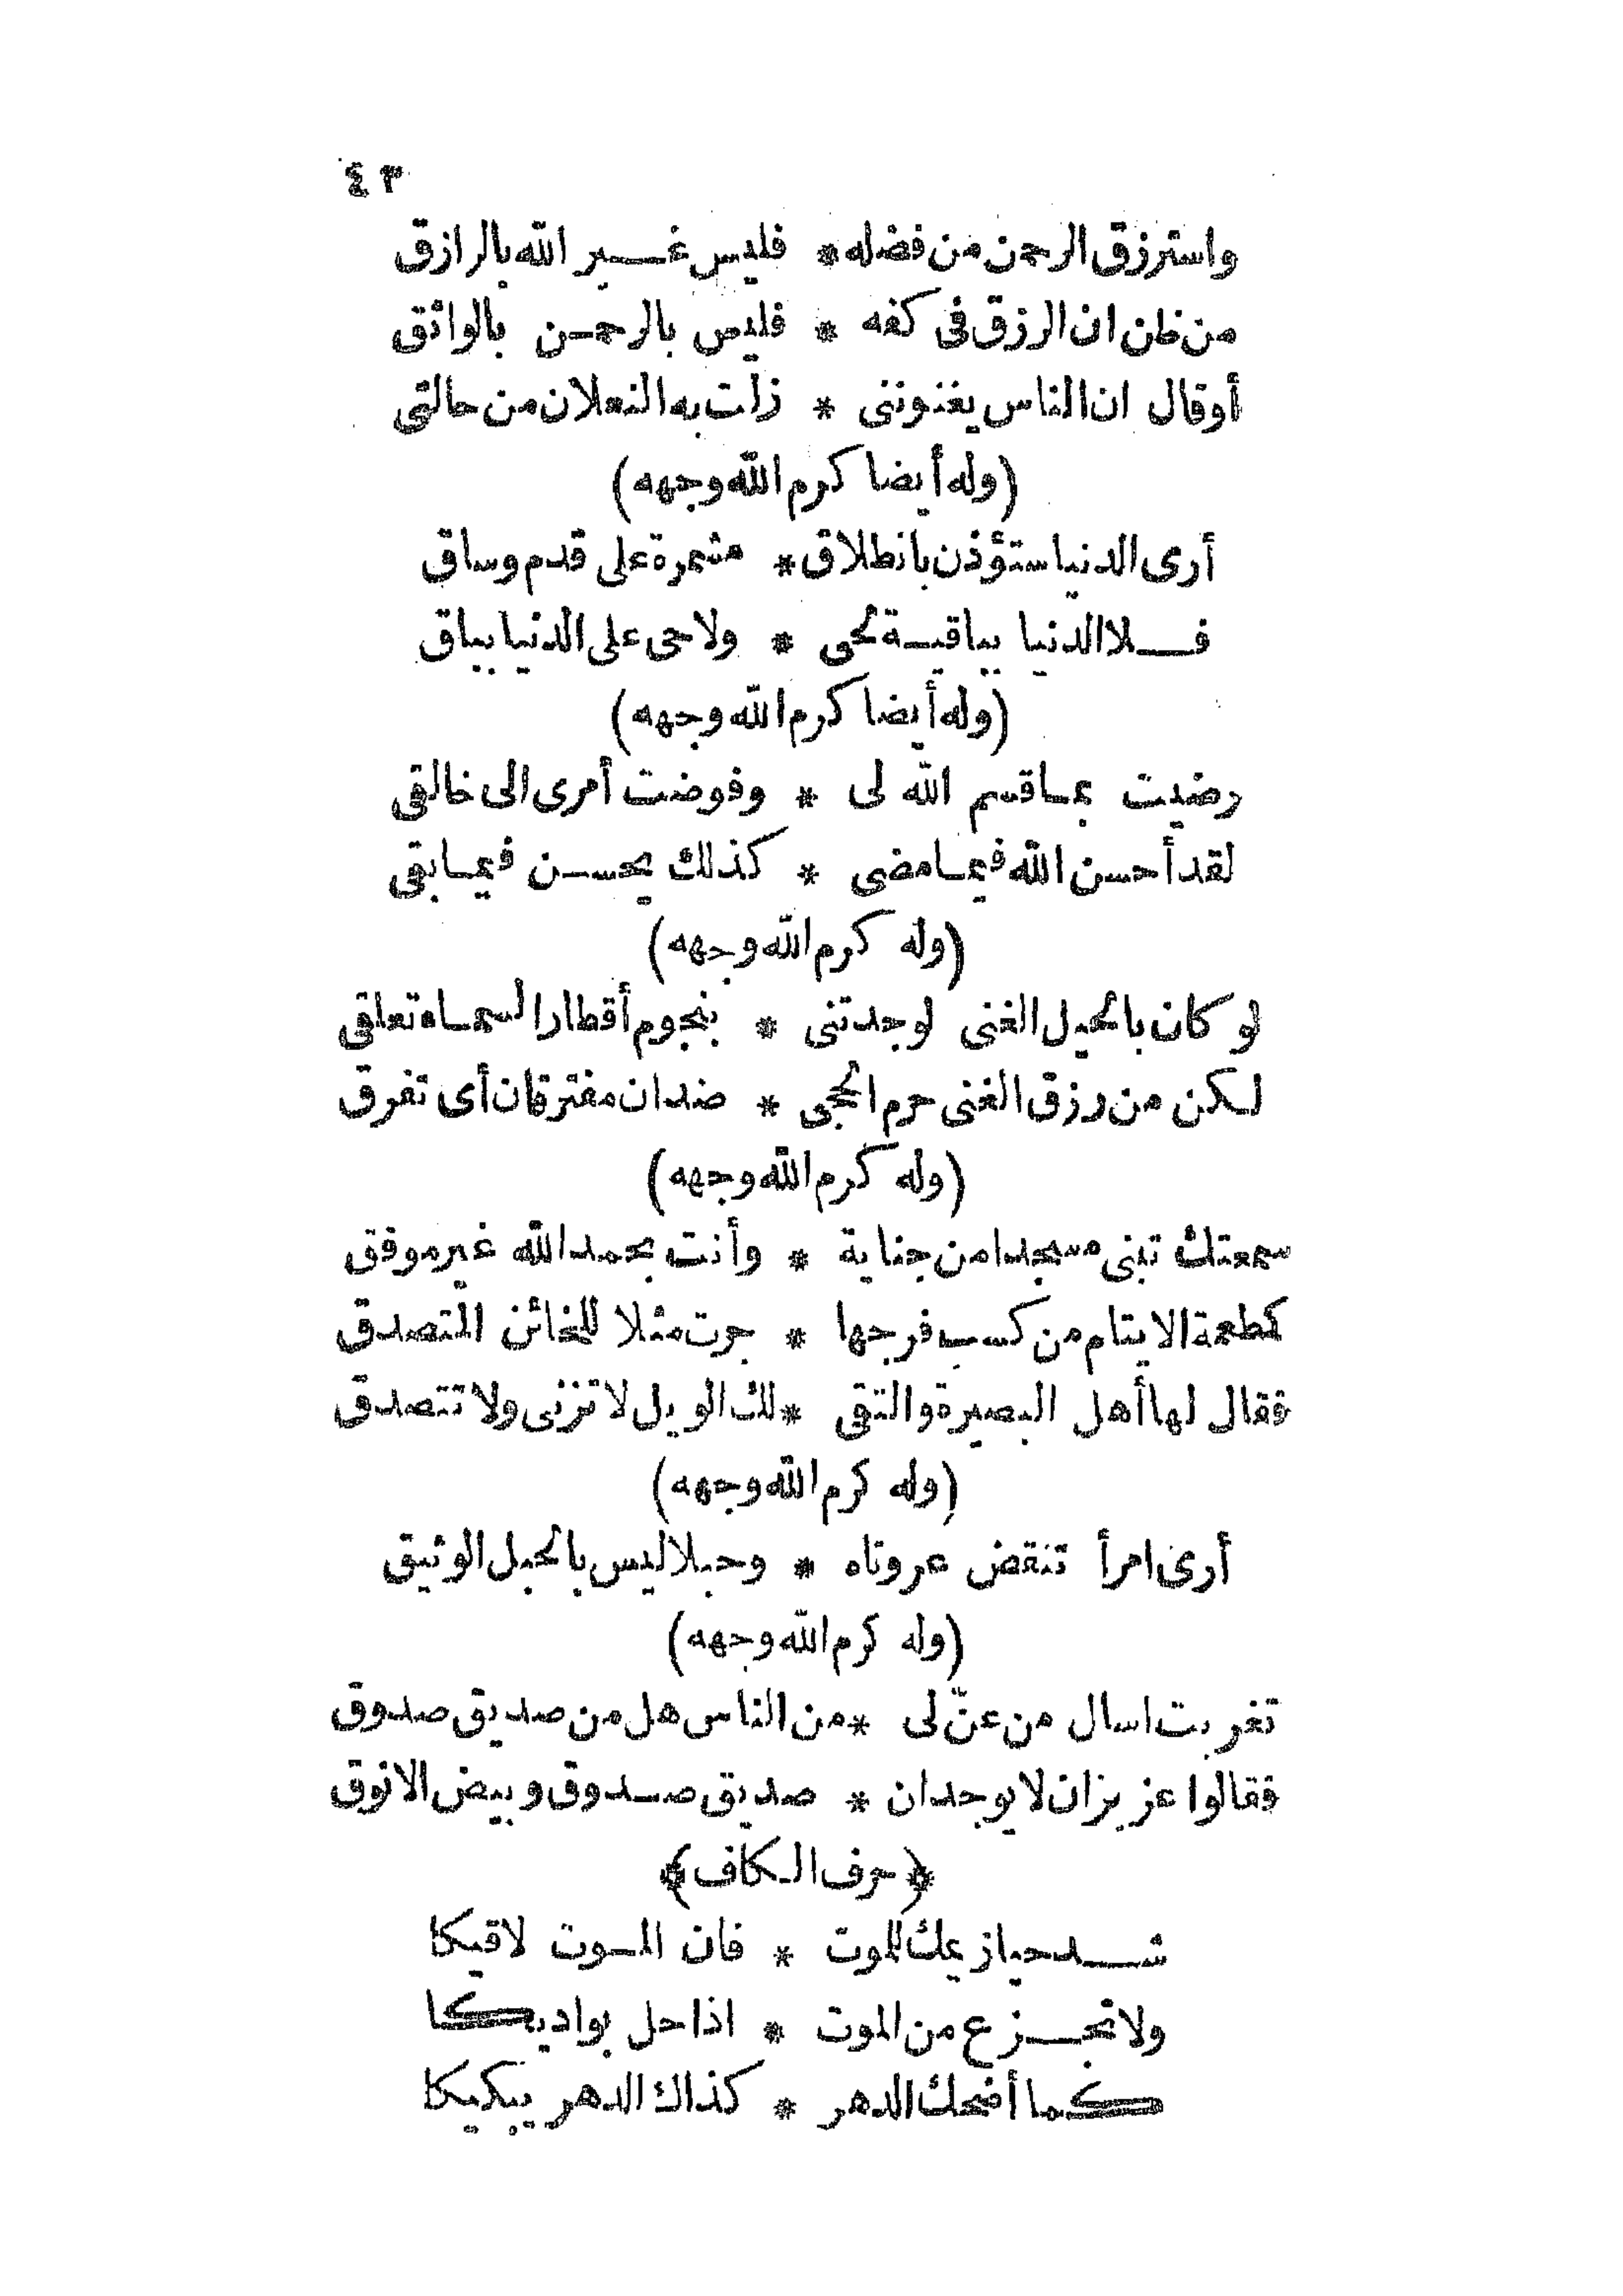 ٤٣
واسترزق الرحمن من فضله * فليس غير الله بالرازق
من ظن ان الرزق فى كفه * فليس بالرحمن بالواثق
أو قال ان الناس يغنوننى * زلت به النعلان من حالق
(وله أيضا كرم الله وجهه)
أرى الدنيا ستؤذن بانطلاق * مشمرة على قدم وساق
فلا الدنيا بباقية لحى * ولا حى على الدنيا بباق
(وله أيضا كرم الله وجهه)
رضيت بما قسم الله لى * وفوضت أمرى الى خالقى
لقد أحسن الله فيما مضى * كذلك يحسن فيما بقى
(وله كرم الله وجهه)
لو كان بالحيل الغنى لوجدتنى * بنجوم أقطار السماء تعلقى
لكن من رزق الغنى حرم الحجى * ضدان مفترقان أى تفرق
(وله كرم الله وجهه)
سمعتك تبنى مسجدا من جناية * وأنت بحمد الله غير موفق
كطعمة الايتام من كسب فرجها * جرت مثلا للخائن المتصدق
فقال لها أهل البصيرة والتقى * لك الويل لا تزنى ولا تتصدق
(وله كرم الله وجهه)
أرى امرأ تنقض عروتاه * وحبلا ليس بالحبل الوثيق
(وله كرم الله وجهه)
تغربت اسال من عنّ لى * من الناس هل من صديق صدوق
فقالوا عزيزان لا يوجدان * صديق صدوق وبيض الانوق
﴿حرف الكاف﴾
شد حيازيمك للموت * فان الموت لاقيكا
ولا تجزع من الموت * اذا حل بواديكا
كما أضحك الدهر * كذاك الدهر يبكيكا